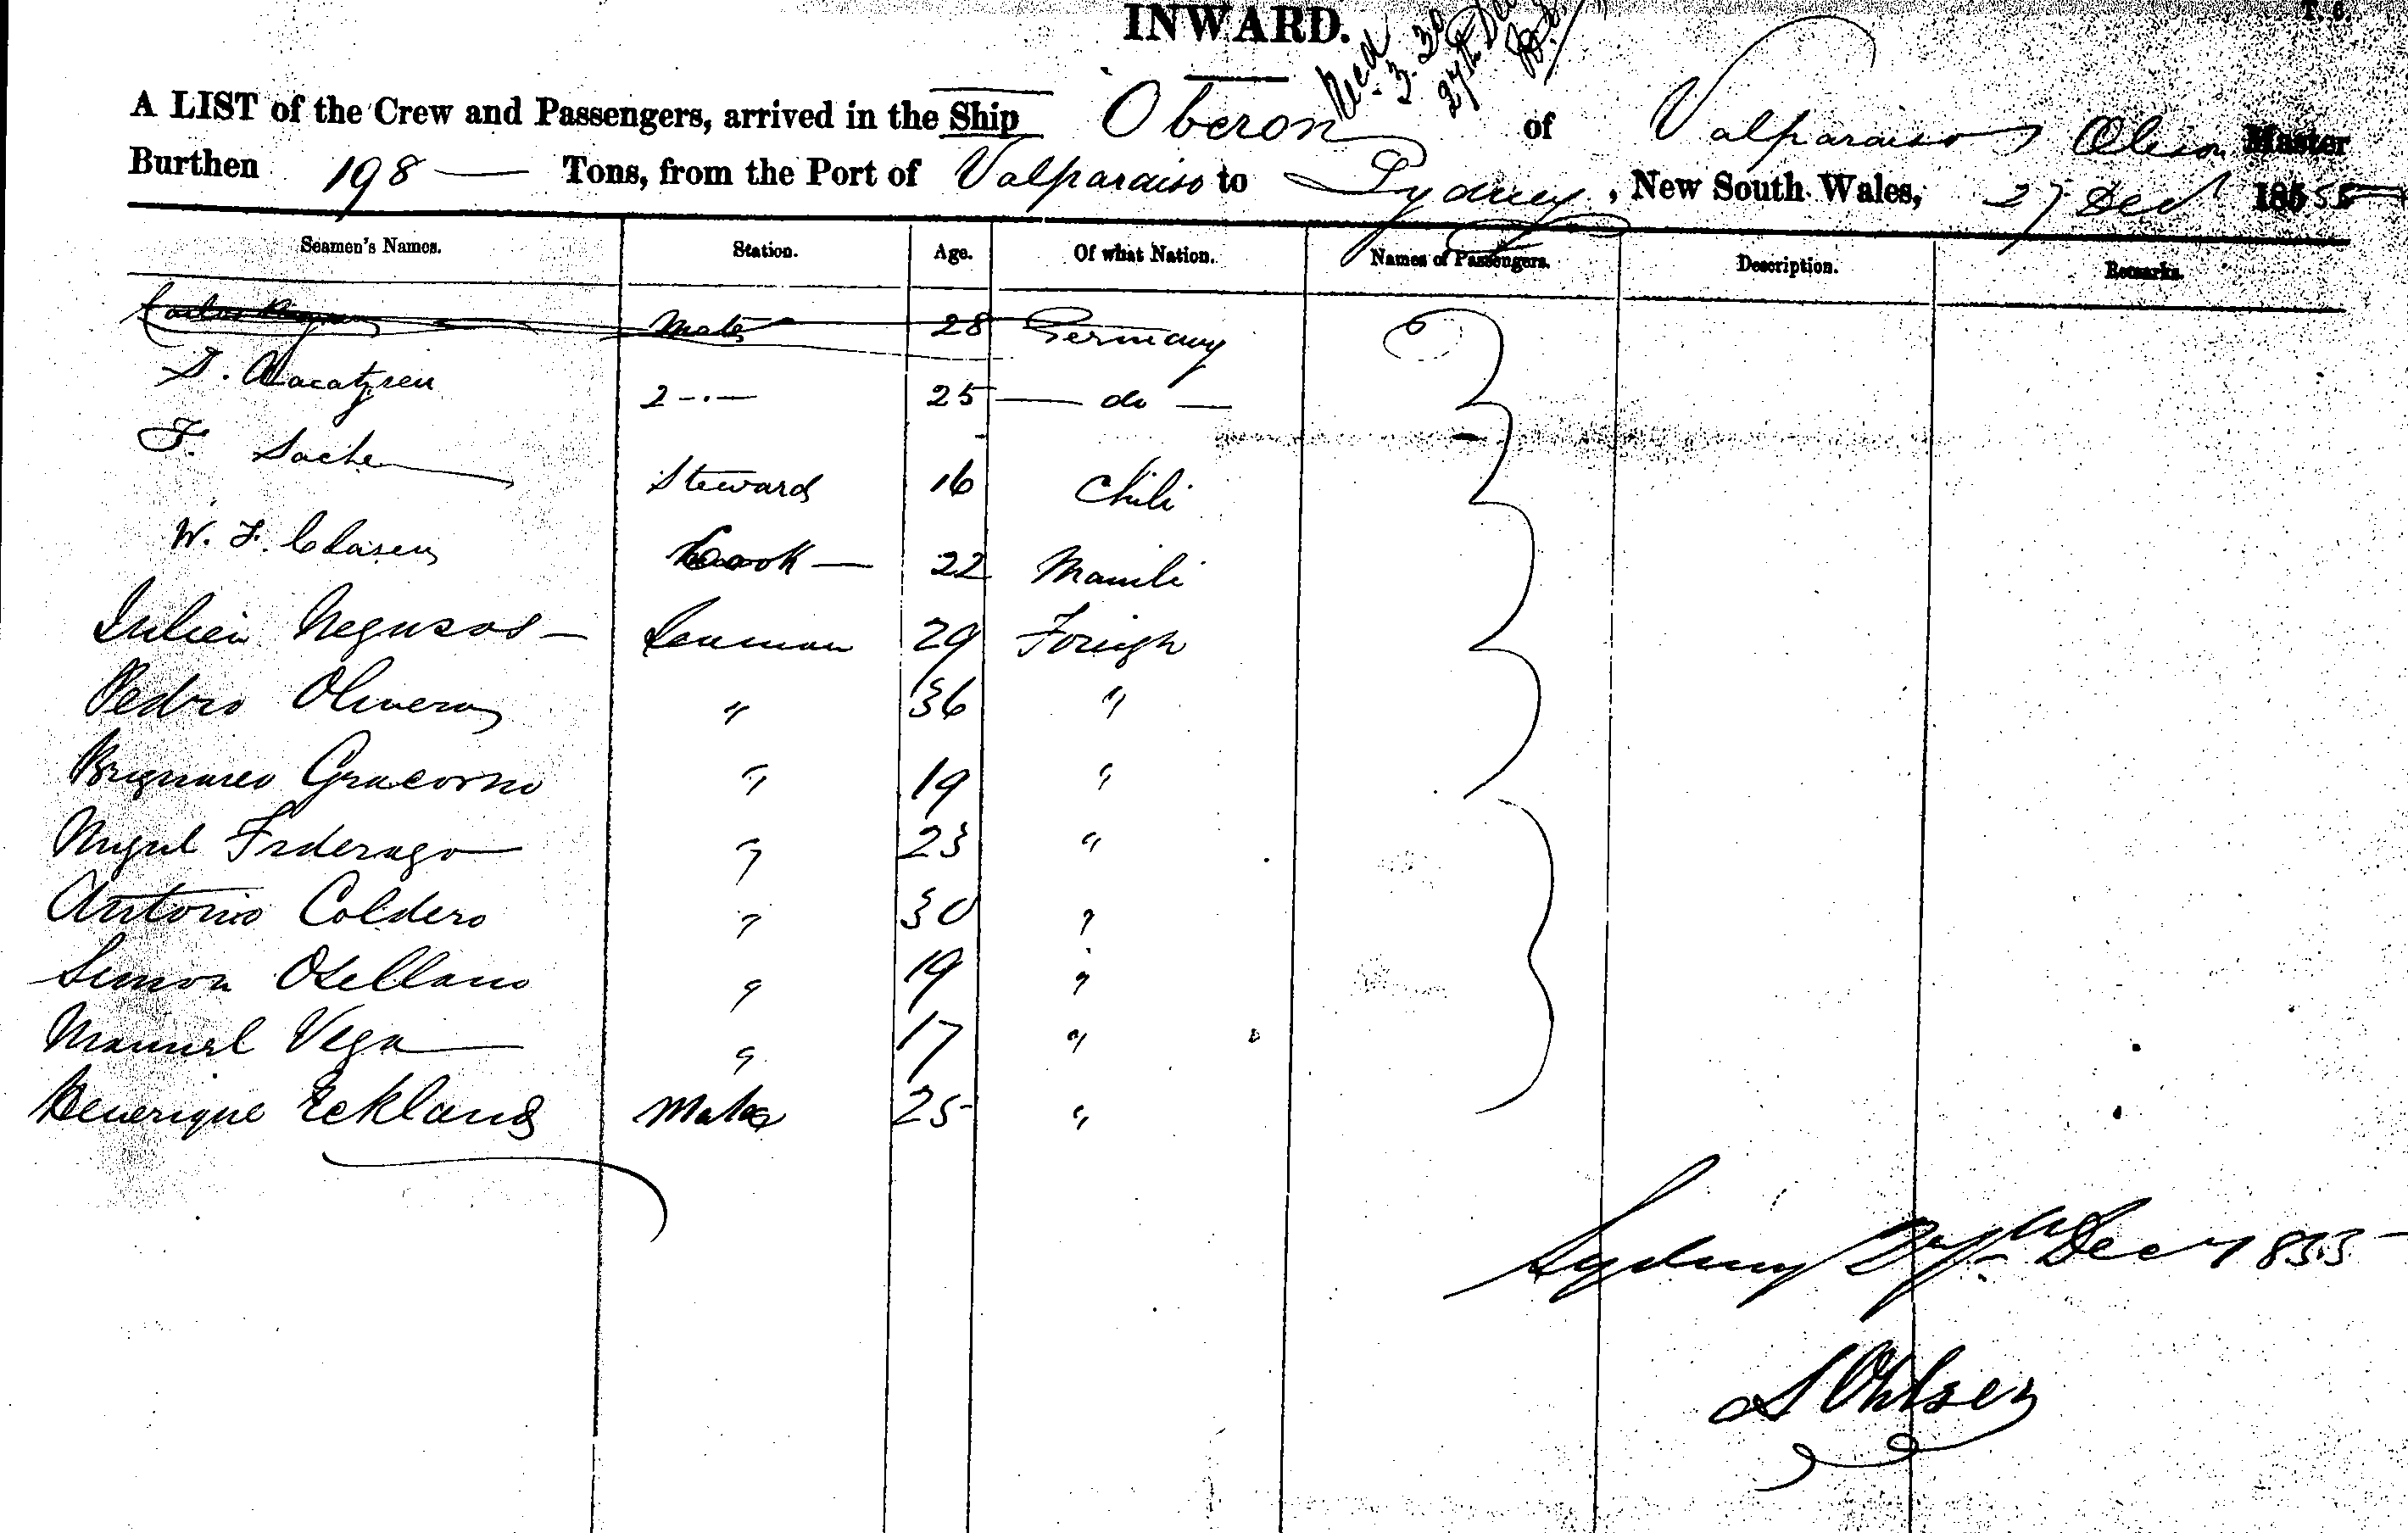 INWARD.
T. 6.
Recd 3.30 27th Dec
A LIST of the Crew and Passengers, arrived in the Ship Oberon of Valparaiso Oleson Master
Burthen 198 — Tons, from the Port of Valparaiso to Sydney, New South Wales, 27 Decr 1855
Seamen's Names. Station. Age. Of what Nation. Names of Passengers. Description. Remarks.
Carlos Mate 28 Germany
2 -.- 25 — do —
F. Sache Steward 16 Chili
W. F. Clasen Cook — 22 Manili
Julien Negusos — Seaman 29 Foreigh
Pedro Olivera " 36 "
Gracorno " 19 "
Miguel Frderago " 23 "
Antonio Coldero " 30 "
Simon Osellano " 19 "
Manuel Vega " 17 "
Henerique Eckland Mate 25 "
Sydney 27th Decr 1855
A Ohlsen